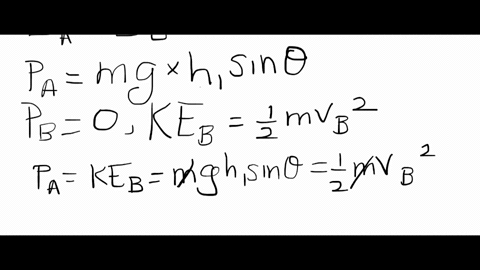 P_A = mg × h₁ sinθ
P_B = 0, KE_B = ½ mv_B²
P_A = KE_B = mgh₁sinθ = ½ mv_B²